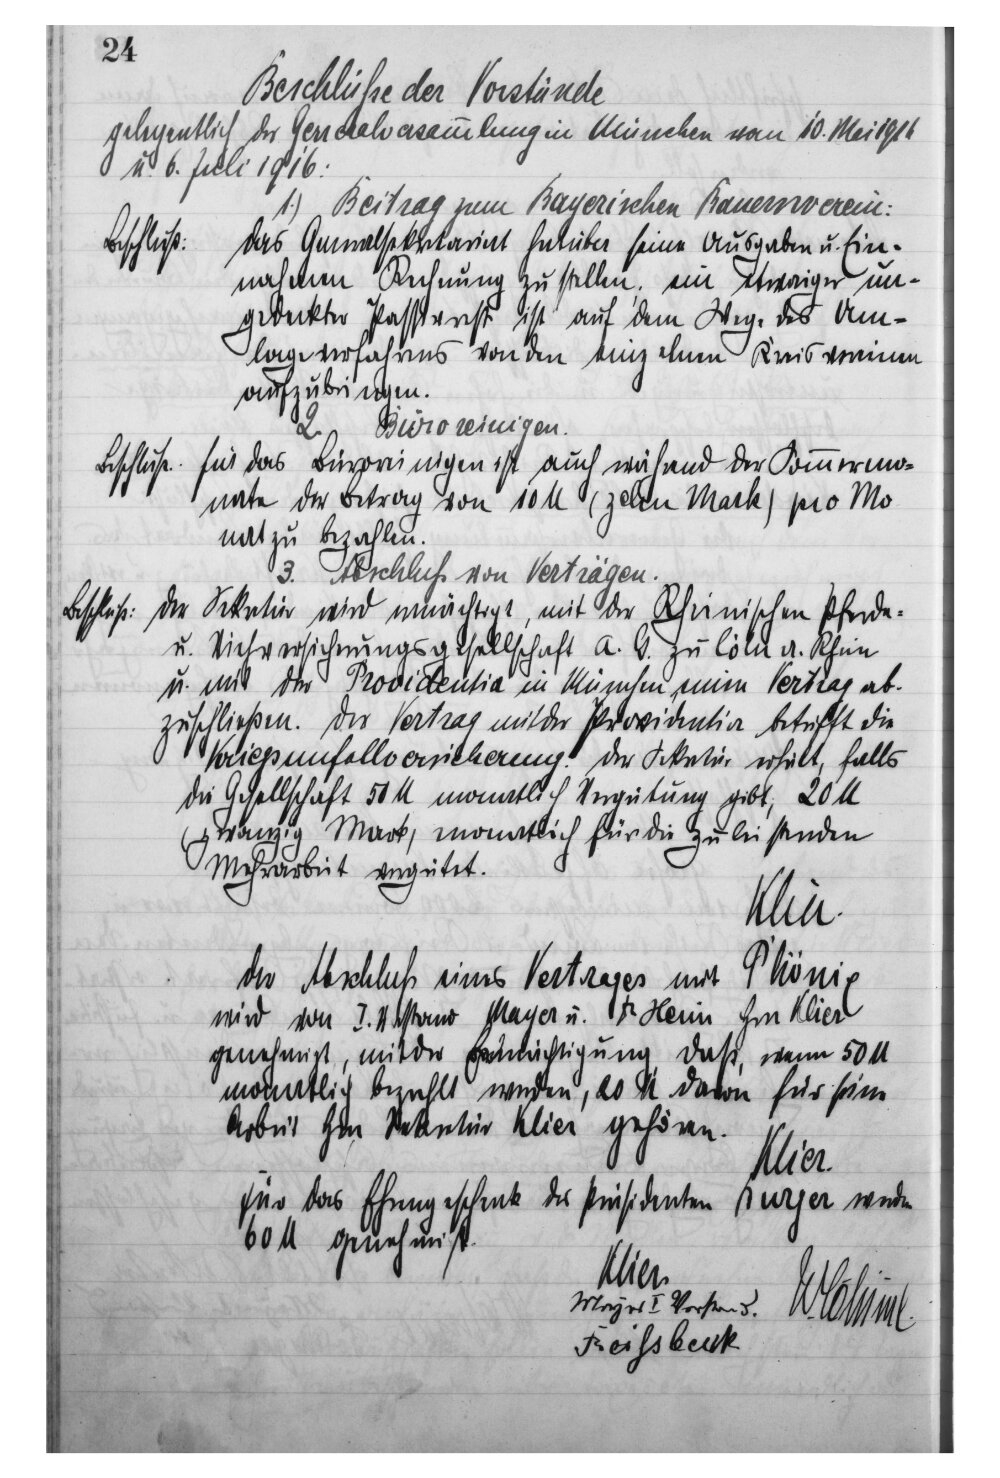 24
Beschlüsse der Vorstände
gelegentlich der Generalversammlung in München vom 10. Mai 1916
u. 6. Juli 1916:
1.) Beitrag zum Bayerischen Bauernverein:
Beschluß: Das Generalsekretariat hat über seine Ausgaben u. Ein-
nahmen Rechnung zu stellen, ein etwaiger un-
gedeckter Passivrest ist auf dem Wege des Um-
lageverfahrens von den einzelnen Kreisvereinen
aufzubringen.
2. Büroreinigen.
Beschluß: Für das Büroreinigen ist auch während der Sommermo-
nate der Betrag von 10 M (zehn Mark) pro Mo
nat zu bezahlen.
3. Abschluß von Verträgen.
Beschluß: Der Sekretär wird ermächtigt, mit der Rheinischen Pferde-
u. Viehversicherungsgesellschaft a. G. zu Cöln a. Rhein
u. mit der Providentia in München einen Vertrag ab-
zuschließen. Der Vertrag mit der Providentia betrifft die
Kriegsunfallversicherung. Der Sekretär erhält, falls
die Gesellschaft 50 M monatlich Vergütung gibt, 20 M
(zwanzig Mark) monatlich für die zu leistenden
Mehrarbeit vergütet.
Klier.
Der Abschluß eines Vertrages mit Phönix
wird von I. Vorstand Mayer u. Dr Heim Hrn Klier
genehmigt, mit der Ermächtigung daß, wenn 50 M
monatlich bezahlt werden, 20 M davon für seine
Arbeit Hrn Sekretär Klier gehören.
Klier.
Für das Ehrengeschenk des Präsidenten werden
60 M genehmigt.
Klier.
Mayer I Vorstand.
Freißbeck